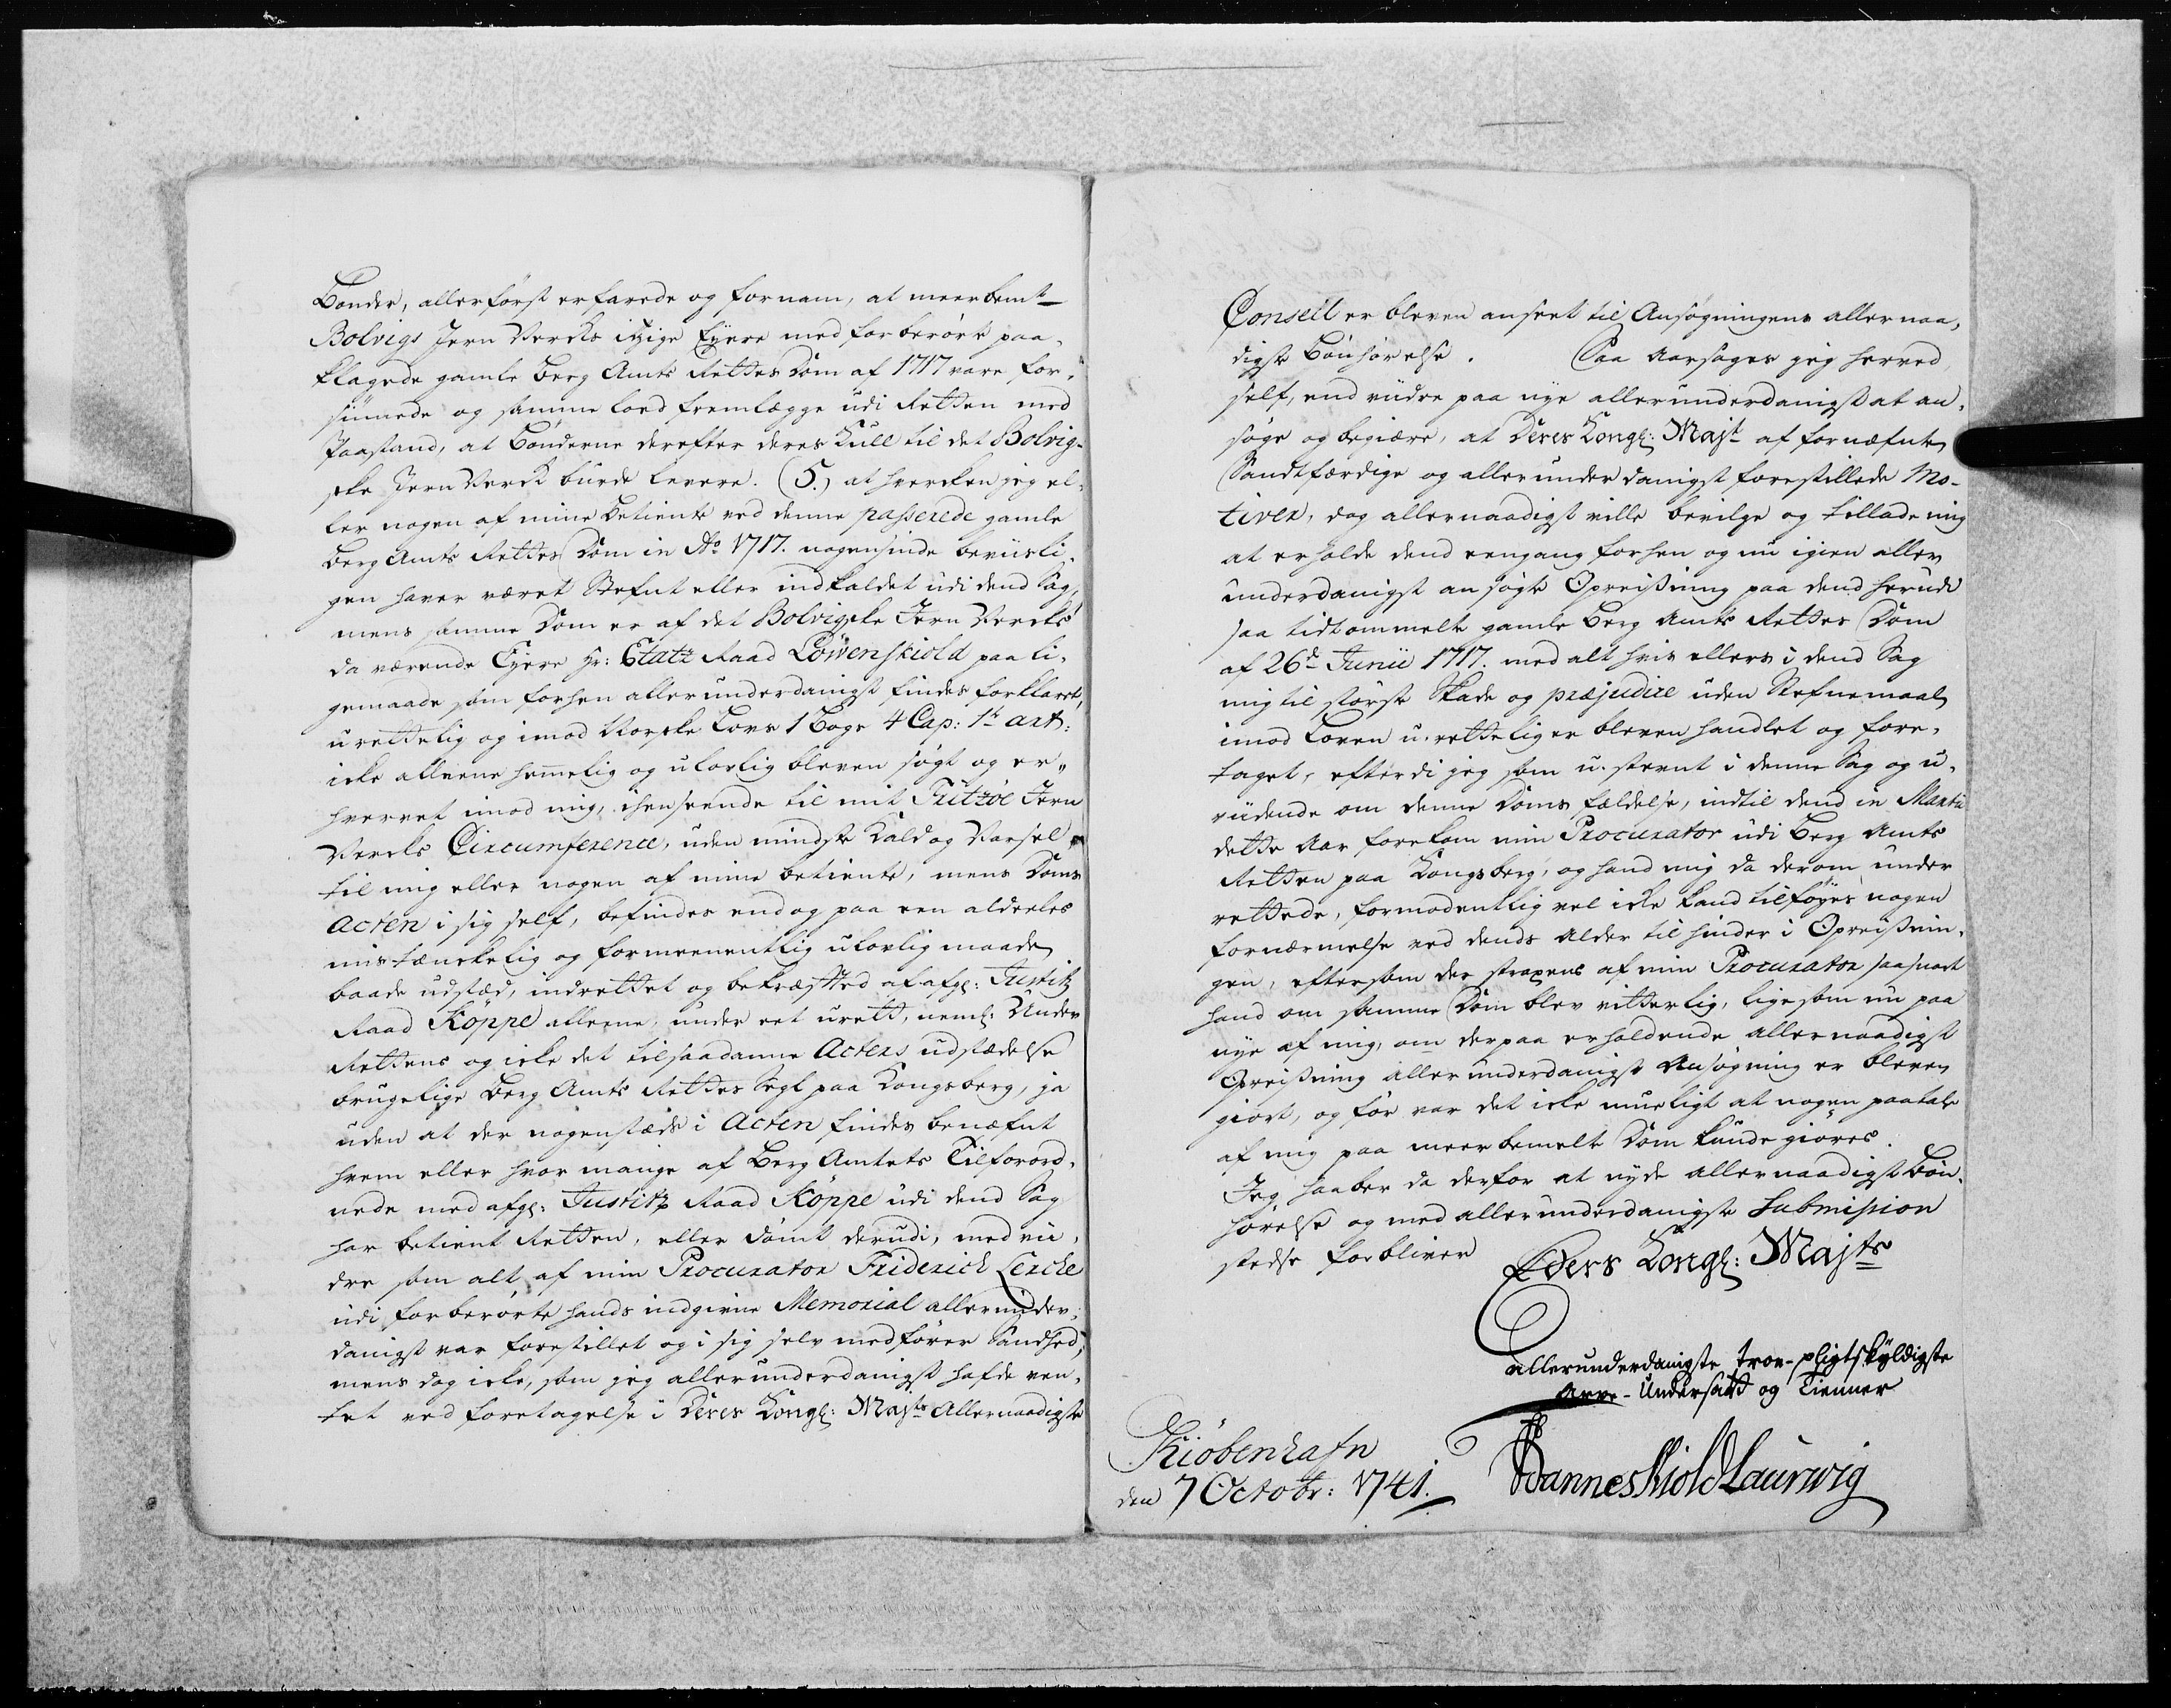 Bønder, allerførst erfarede og fornam, at meerbemt
Bolvigs Jern Vercks itzige Eyere med forberørte paa-
klagede gamle Berg Amts Rettes Dom af 1717 vare for-
siunede og samme loed fremlægge udi Retten med
Paastand, at Bønderne derefter deres Kull til det Bolvig-
ske Jern Verck burde levere. (5.) at hvercken jeg el-
ler nogen af mine Betiente ved denne passerede gamle
Berg Amts Rettes Dom in Ao 1717. nogensinde beviisli-
gen haver været Stefnt eller indkaldet udi dend Sag,
mens samme Dom er af det Bolvigske Jern Vercks
da værende Eyere Hr: Etatz Raad Löwenskiold paa li-
gemaade som forhen allerunderdanigst findes forklaret,
urettelig og imod Norske Lovs 1 Bogs 4 Cap: 1te art:
icke alleene hemmelig og ulovlig bleven søgt og er-
hvervet imod mig, i henseende til mit Fritzöe Jern
Vercks Circumference, uden mindste Kald og Varsel
til mig eller nogen af mine betiente, mens Doms
Acten i sig self, befindes endog paa een aldeeles
mistænckelig og formeenentlig ulovlig maade
baade udstæd, indrettet og bekræfted af afgl: Justitz
Raad Köppe alleene, under eet urett, neml: Under
Rettens og icke det til saadanne Acters udstædelse
brugelige Berg Amts Rettes Segl paa Kongsberg, ja
uden at der nogenstæds i Acten findes benæfnt
hvem eller hvor mange af Berg Amtets Tilforord-
nede med afgl: Justitz Raad Köppe udi dend Sag
har betient Retten, eller dømt derudi, med vii-
dre som alt af min Procurator Friderich Lerche
udi forberørte hands indgivne Memorial allerunder-
danigst var forestillet og i sig selv medfører Sandhed,
mens dog icke, som jeg allerunderdanigst hafde ven-
tet ved foretagelse i Deres Kongl: Majts Allernaadigste
Conseil er bleven anseet til Ansøgningens allernaa-
digste Bønhørelse. Saa aarsages jeg herved
self, end viidre paa nye allerunderdanigst at an-
søge og begiære, at Deres Kongl: Majt af fornæfnte
Sandfærdige og allerunderdanigst forestillede Mo-
tiver, dog allernaadigst ville bevilge og tillade mig
at erholde dend eengang forhen og nu igien aller
underdanigst ansøgte Opreisning paa dend herudi
saa tidt ommelte gamle Berg Amts Rettes Dom
af 26de Junii 1717. med alt hvis ellers i dend Sag
mig til største Skade og præjudice uden Stefnemaal
imod Loven u-rettelig er bleven handlet og fore-
taget, efterdi jeg som u-stevnt i denne Sag og u-
viidende om denne Doms fældelse, indtil dend in Martii
dette Aar forekom min Procurator udi Berg Amts
Retten paa Kongsberg, og hand mig da derom under
rettede, formodentlig vel icke kand tilføyes nogen
fornærmelse ved dends Alder til hinder i Opreisnin-
gen, eftersom der straxens af min Procurator saasnart
hand om samme Dom blev vitterlig, ligesom nu paa
nye af mig, om derpaa erholdende allernaadigst
Opreisning allerunderdanigst Ansøgning er bleven
giort, og før var det icke mueligt at nogen paatale
af mig paa meerbemelte Dom kunde giøres.
Jeg haaber da derfor at nyde allernaadigst Bøn-
hørelse og med allerunderdanigste Submission
stedse forbliver
Eders Kongl: Majts
allerunderdanigste troe-pligtskyldigste
Arve-Undersatt og Tienner
Kiöbenhafn
den 7 Octobr: 1741.
Danneskiold Laurwig